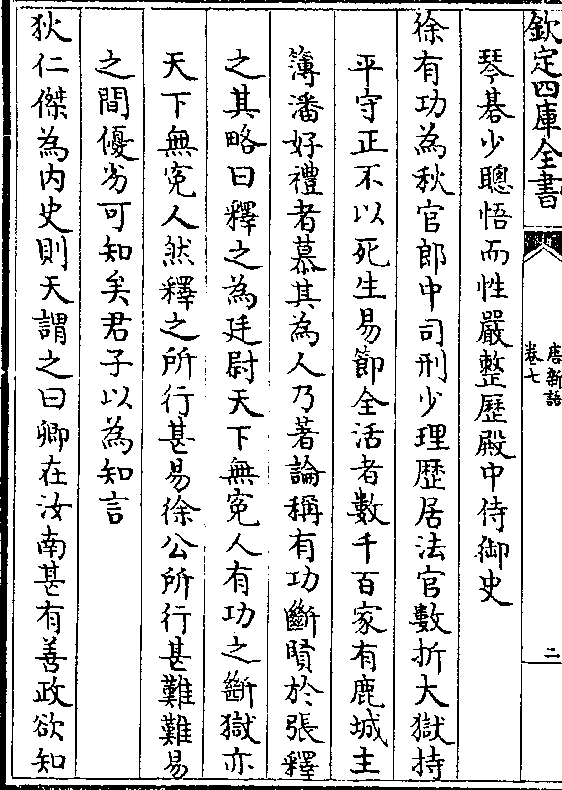 欽定四庫全書
唐新語
卷七
二
琴碁少聰悟而性嚴整歷殿中侍御史
徐有功為秋官郎中司刑少理歷居法官數折大獄持
平守正不以死生易節全活者數千百家有鹿城主
簿潘好禮者慕其為人乃著論稱有功斷賢於張釋
之其略曰釋之為廷尉天下無寃人有功之斷獄亦
天下無寃人然釋之所行甚易徐公所行甚難難易
之間優劣可知矣君子以為知言
狄仁傑為内史則天謂之曰卿在汝南甚有善政欲知